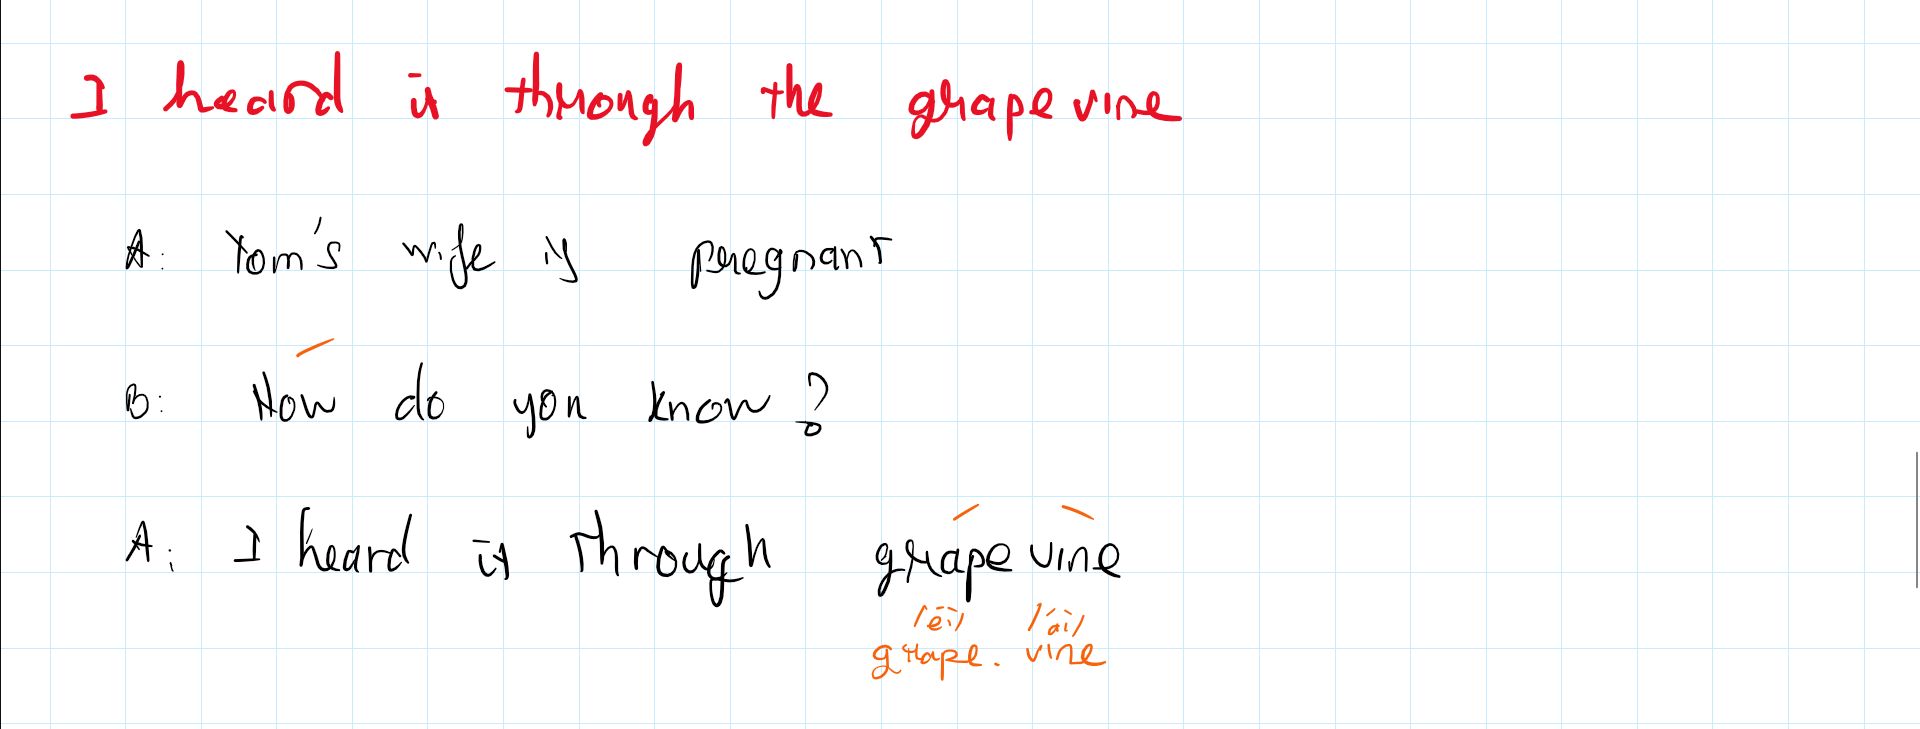 I heard it through the grapevine
A: Tom's wife is pregnant
B: How do you know?
A: I heard it through grapevine
/ei/ /ai/
grape. vine